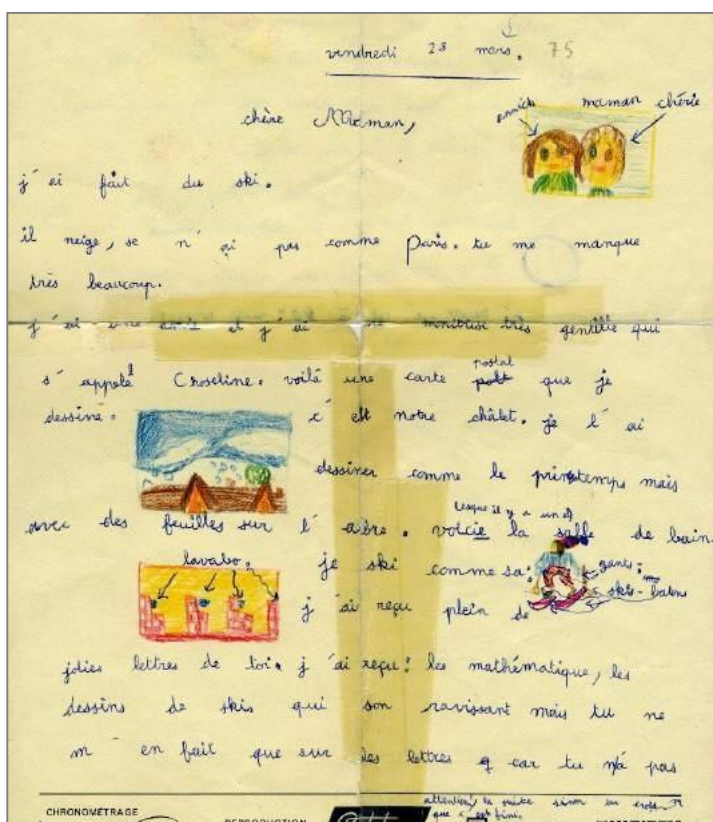 vendredi 28 mars. 75
annick maman chérie
chère Maman,
j'ai fait du ski.
il neige, se n'ai pas comme Paris. tu me manque
très beaucoup.
j'ai une et j'ai monitrise très gentille qui
s'appele Croseline. voilà une carte postal que je
dessine. c'est notre châlet. je l'ai
dessiner comme le printemps mais
avec des feuilles sur l'abre. voicie la salle de bain.
lavabo. je ski comme sa:
gants
skis - batons
j'ai reçu plein de
jolies lettres de toi. j'ai reçu: les mathématique, les
dessins de skis qui son ravissant mais tu ne
m'en fait que sur les lettres car tu n'a pas
attention, la suite
que c'est fini.
CHRONOMÉTRAGE
REPRODUCTION